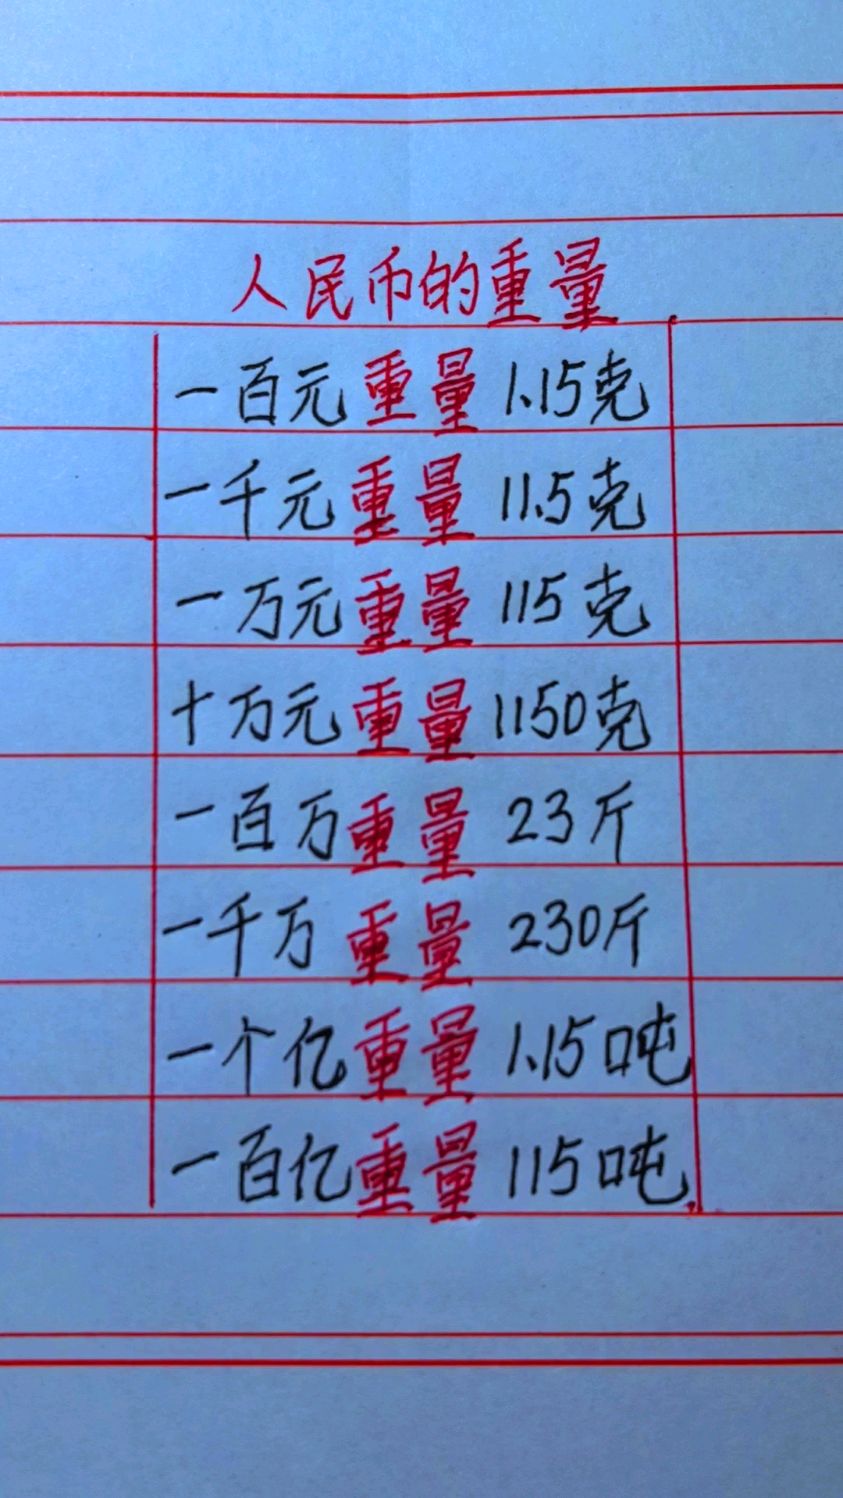 人民币的重量
一百元重量1.15克
一千元重量11.5克
一万元重量115克
十万元重量1150克
一百万重量23斤
一千万重量230斤
一个亿重量1.15吨
一百亿重量115吨